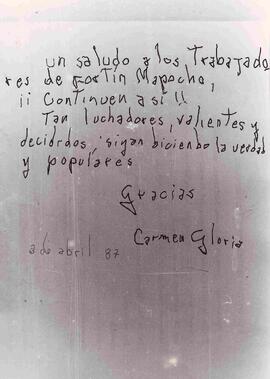 un saludo a los Trabajado
res de Fortín Mapocho,
¡¡ Continuen así !!
Tan luchadores, valientes y
decidrdos, sigan diciendo la verdad
y populares
Gracias
Carmen Gloria
de abril 87